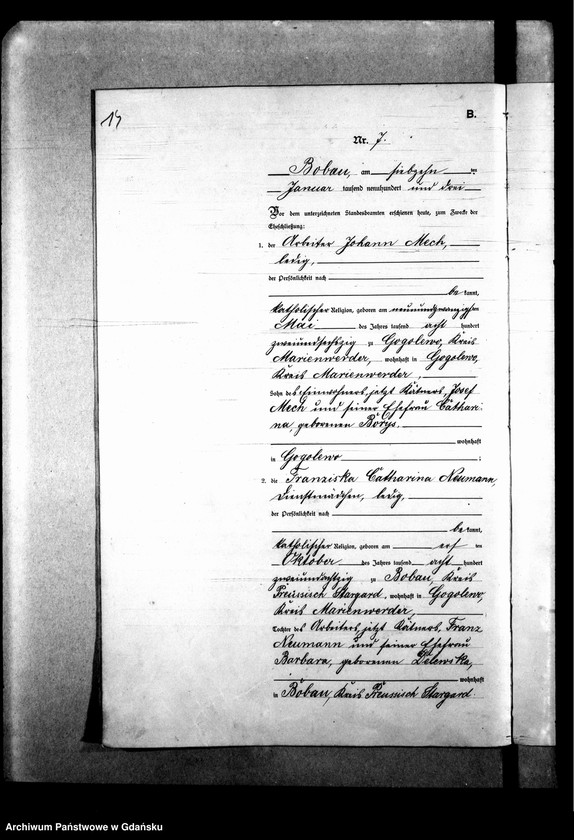 14
B.
Nr. 7.
Bobau, am siebzehn ten
Januar tausend neunhundert und drei
Vor dem unterzeichneten Standesbeamten erschienen heute, zum Zwecke der
Eheschließung:
1. der Arbeiter Johann Mech,
ledig,
der Persönlichkeit nach
be kannt,
katholischer Religion, geboren am neunundzwanzigsten
Mai des Jahres tausend acht hundert
zweiundsechzig zu Gogolewo, Kreis
Marienwerder, wohnhaft in Gogolewo,
Kreis Marienwerder,
Sohn des Einwohners, jetzt Kätners, Josef
Mech und seiner Ehefrau Cathari-
na, geborenen Borys.
wohnhaft
in Gogolewo ;
2. die Franziska Catharina Neumann,
Dienstmädchen, ledig,
der Persönlichkeit nach
be kannt,
katholischer Religion, geboren am elf ten
Oktober des Jahres tausend acht hundert
zweiundachtzig zu Bobau, Kreis
Preussisch Stargard, wohnhaft in Gogolewo,
Kreis Marienwerder,
Tochter des Arbeiters, jetzt Kätners, Franz
Neumann und seiner Ehefrau
Barbara, geborenen Delewska,
wohnhaft
in Bobau, Kreis Preussisch Stargard.
Archiwum Państwowe w Gdańsku